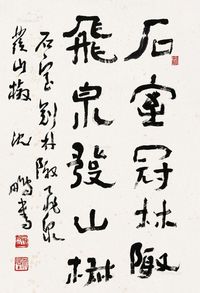 石室冠林陬
飛泉發山椒
石室冠林陬飛泉
發山椒 沈鵬書